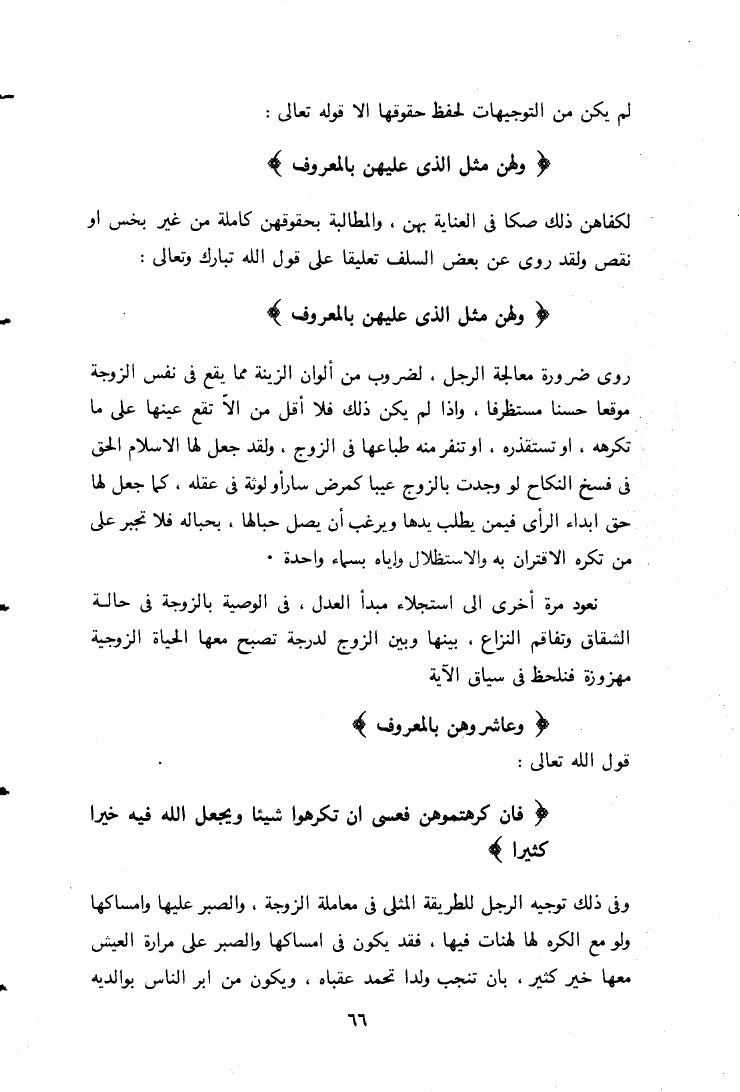 لم يكن من التوجيهات لحفظ حقوقها الا قوله تعالى :
﴿ ولهن مثل الذى عليهن بالمعروف ﴾
لكفاهن ذلك صكا فى العناية بهن ، والمطالبة بحقوقهن كاملة من غير بخس او
نقص ولقد روى عن بعض السلف تعليقا على قول الله تبارك وتعالى :
﴿ ولهن مثل الذى عليهن بالمعروف ﴾
روى ضرورة معالجة الرجل ، لضروب من ألوان الزينة مما يقع فى نفس الزوجة
موقعا حسنا مستظرفا ، واذا لم يكن ذلك فلا أقل من الاّ تقع عينها على ما
تكرهه ، او تستقذره ، او تنفر منه طباعها فى الزوج ، ولقد جعل لها الاسلام الحق
فى فسخ النكاح لو وجدت بالزوج عيبا كمرض سارأو لوثة فى عقله ، كما جعل لها
حق ابداء الرأى فيمن يطلب يدها ويرغب أن يصل حبالها ، بحباله فلا تجبر على
من تكره الاقتران به والاستظلال وإياه بسماء واحدة .
نعود مرة أخرى الى استجلاء مبدأ العدل ، فى الوصية بالزوجة فى حالة
الشقاق وتفاقم النزاع ، بينها وبين الزوج لدرجة تصبح معها الحياة الزوجية
مهزوزة فنلحظ فى سياق الآية
﴿ وعاشروهن بالمعروف ﴾
قول الله تعالى :
﴿ فان كرهتموهن فعسى ان تكرهوا شيئا ويجعل الله فيه خيرا
كثيرا ﴾
وفى ذلك توجيه الرجل للطريقة المثلى فى معاملة الزوجة ، والصبر عليها وامساكها
ولو مع الكره لها لهنات فيها ، فقد يكون فى امساكها والصبر على مرارة العيش
معها خير كثير ، بان تنجب ولدا تحمد عقباه ، ويكون من ابر الناس بوالديه
٦٦